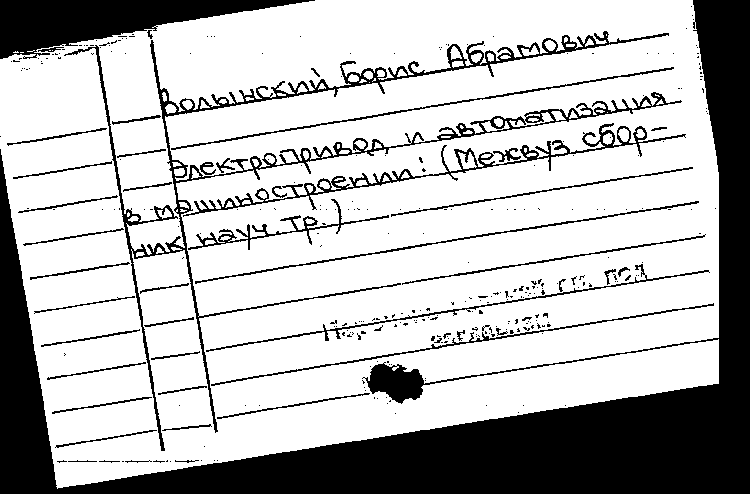 Волынский, Борис Абрамович.
Электропривод и автоматизация
в машиностроении: (Межвуз. сбор-
ник науч. тр.)
см. под
заглавием